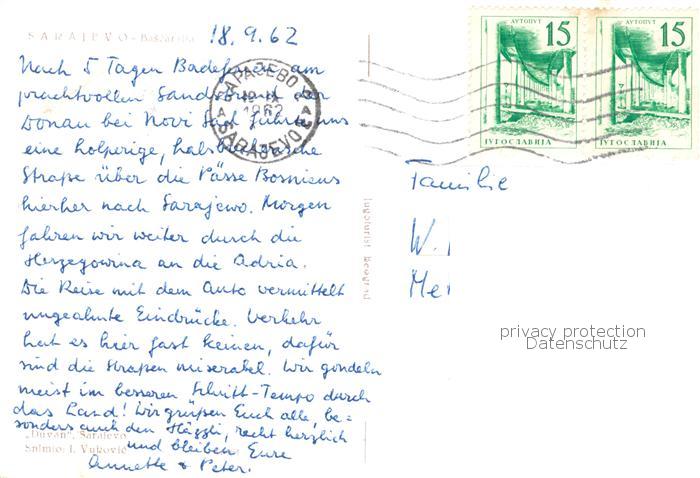 SARAJEVO - Baščaršija
18.9.62
Nach 5 Tagen Badeferien am
prachtvollen Sandstrand der
Donau bei Novi Sad führte uns
eine holperige, halsbrecherische
Straße über die Pässe Bosniens
hierher nach Sarajewo. Morgen
fahren wir weiter durch die
Herzegowina an die Adria.
Die Reise mit dem Auto vermittelt
ungeahnte Eindrücke. Verkehr
hat es hier fast keinen, dafür
sind die Straßen miserabel. Wir gondeln
meist im besseren Schritt-Tempo durch
das Land! Wir grüßen Euch alle, be=
sonders auch den Häggli, recht herzlich
und bleiben Eure
Annette & Peter.
„Duvan", Sarajevo
Snimio: I. Vuković
Jugoturist Beograd
САРАЈЕВО
1962
SARAJEVO
АУТОПУТ
15
ЈУГОСЛАВИЈА
АУТОПУТ
15
ЈУГОСЛАВИЈА
Familie
W.
Me
privacy protection
Datenschutz